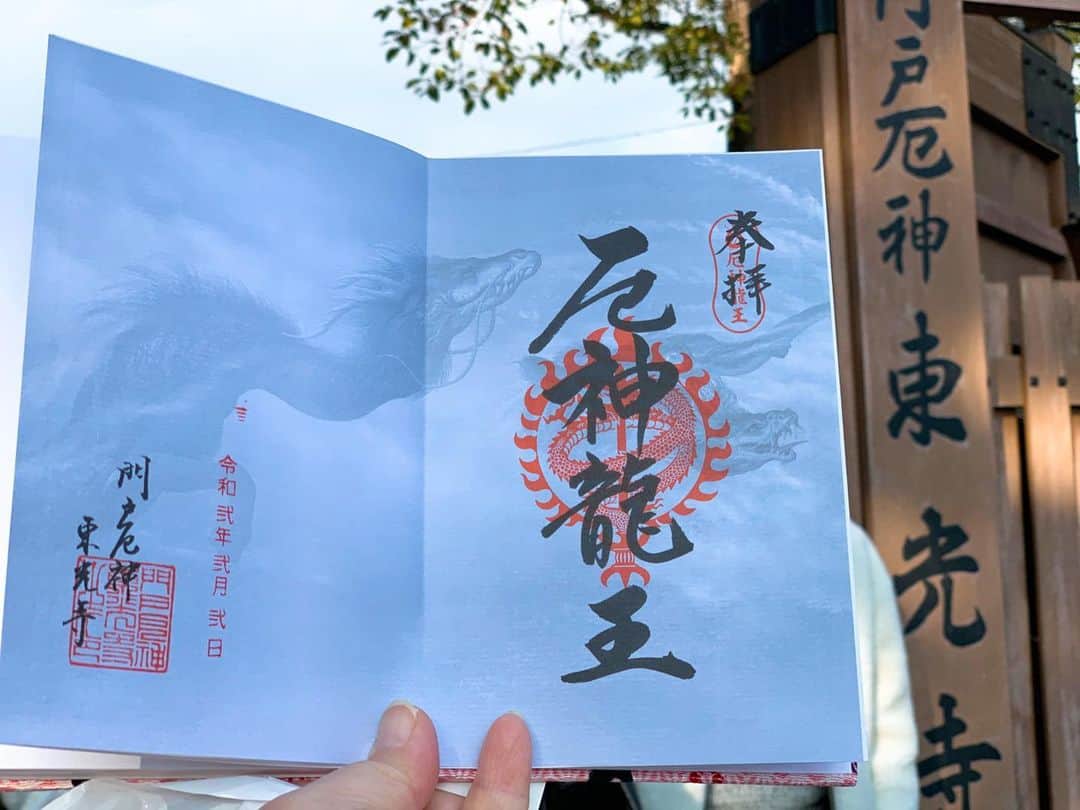 奉拝
厄神龍王
厄神龍王
令和弐年弐月弐日
門戸厄神
東光寺
門戸厄神東光寺